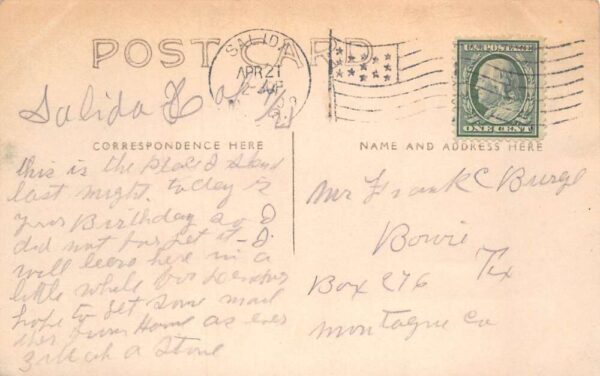 POST CARD
SALIDA
APR 21
U.S. POSTAGE
ONE CENT
Salida
CORRESPONDENCE HERE
NAME AND ADDRESS HERE
this is the place I
last night. today is
your Birthday so I
did not for get it - I
will leave here in a
little while for
hope to get some mail
from Home as ever
a Stone
Mr Frank C
Bowie
Tex
Box 276
montague co